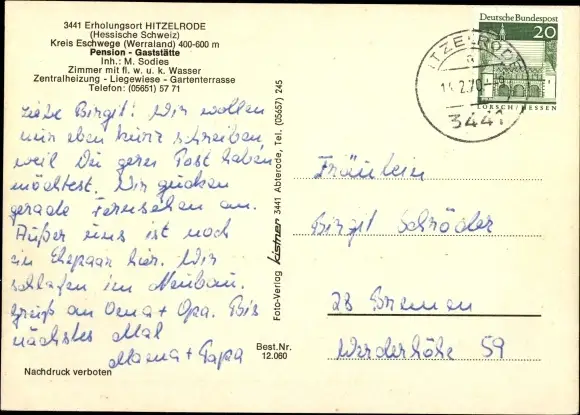 3441 Erholungsort HITZELRODE
(Hessische Schweiz)
Kreis Eschwege (Werraland) 400-600 m
Pension - Gaststätte
Inh.: M. Sodies
Zimmer mit fl. w. u. k. Wasser
Zentralheizung - Liegewiese - Gartenterrasse
Telefon: (05651) 57 71
Liebe Birgit! Wir wollen
nur eben kurz schreiben
weil Du gern Post haben
möchtest. Wir gucken
gerade Fernsehen an.
Außer uns ist noch
ein Ehepaar hier. Wir
schlafen im Neubau.
Gruß an Oma + Opa. Bis
nächstes Mal
Mama + Papa
Nachdruck verboten
Best.Nr.
12.060
Foto-Verlag kistner 3441 Abterode, Tel. (05657) 245
Deutsche Bundespost
20
LORSCH/HESSEN
HITZELRODE
a
2.70
3441
Fräulein
Birgit Schröder
28 Bremen
Werderhöhe 59